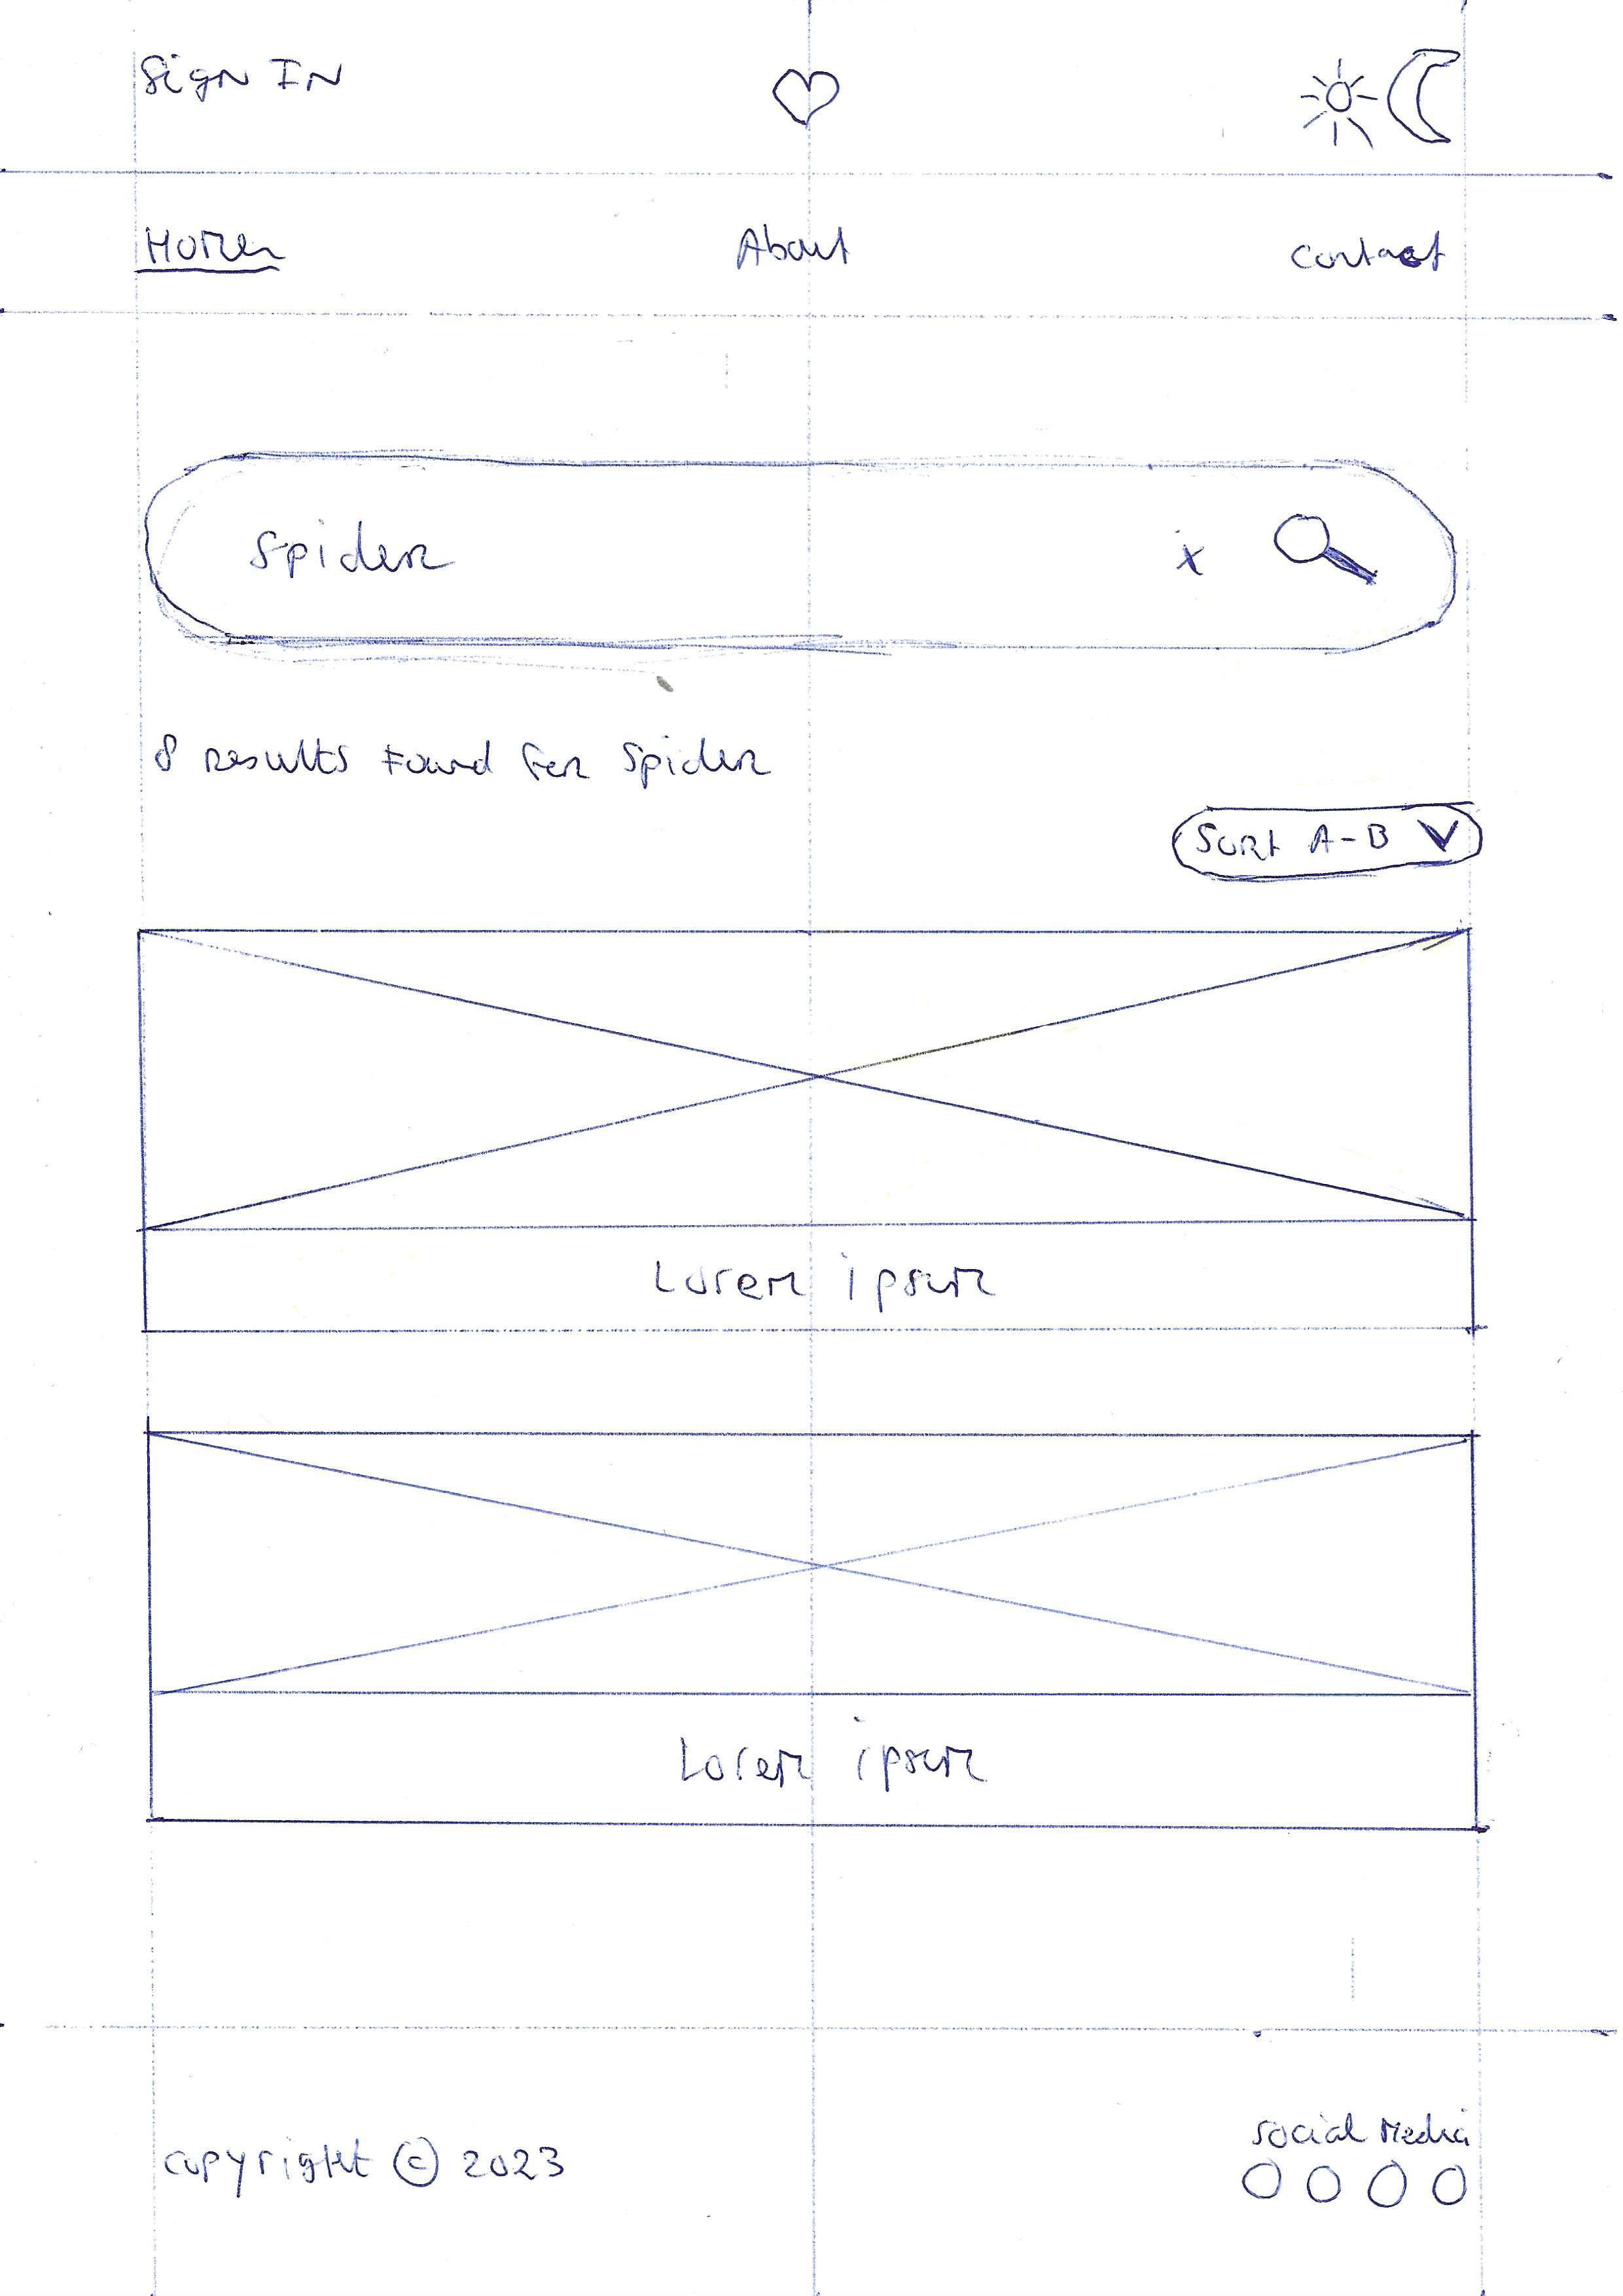 Sign In
Home
About
Contact
Spider
x
8 results found for Spider
Sort A-B
Lorem ipsum
Lorem ipsum
copyright © 2023
social Media